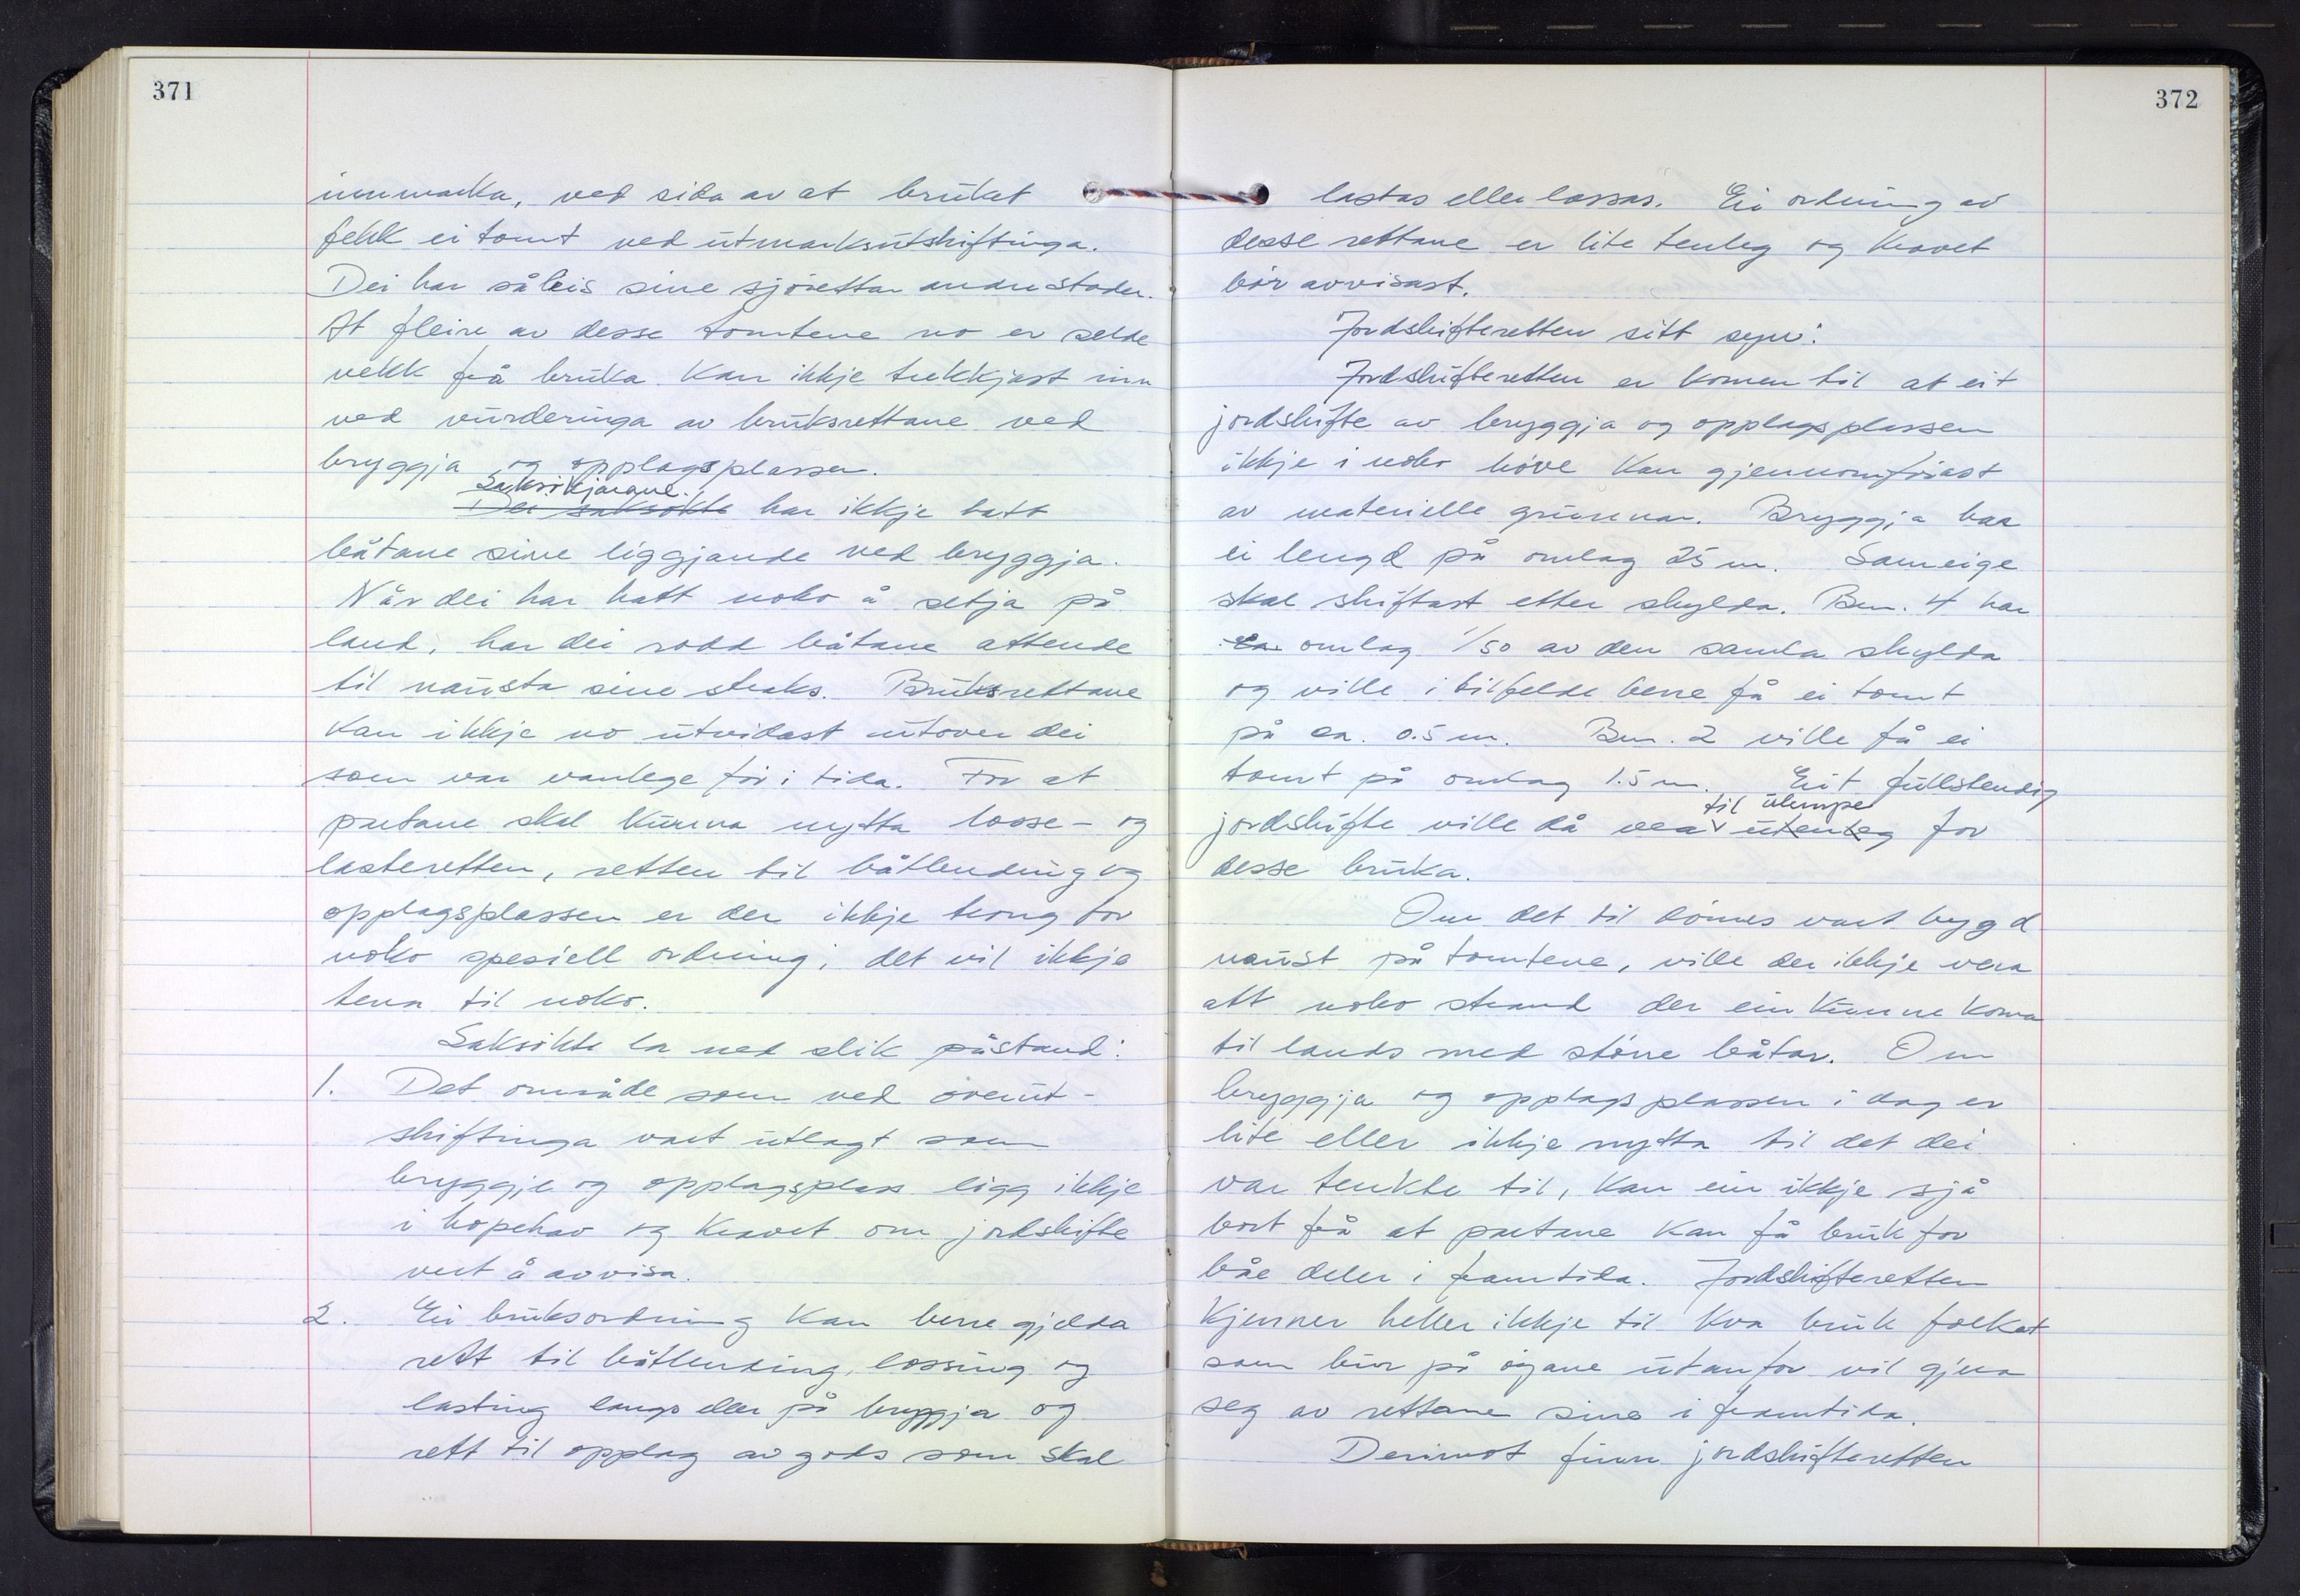 371
innmarka, ved sida av at bruket
fekk ei tomt ved utmarksutskiftinga.
Dei har såleis sine sjørettar andre stader.
At fleire av desse tomtene no er selde
vekk frå bruka kan ikkje trekkjast inn
ved vurderinga av bruksrettane ved
bryggja og opplagsplassen.
Saksøkjarane
Dei saksøkte har ikkje hatt
båtane sine liggjande ved bryggja.
Når dei har hatt noko å setja på
land, har dei rodd båtane attende
til nausta sine straks. Bruksrettane
kan ikkje no utvidast utover dei
som var vanlege før i tida. For at
partane skal kunna nytta losse- og
lasteretten, retten til båtlending og
opplagsplassen er der ikkje trong for
noko spesiell ordning, det vil ikkje
tena til noko.
Saksøkte la ned slik påstand:
1. Det område som ved overut-
skiftinga vart utlagt som
bryggje og opplagsplass ligg ikkje
i hopehav og kravet om jordskifte
vert å avvisa.
2. Ei bruksordning kan berre gjelda
rett til båtlending, lossing og
lasting langs eller på bryggja og
rett til opplag av gods som skal
372
lastas eller lossas. Ei ordning av
desse rettane er lite tenleg og kravet
bør avvisast.
Jordskifteretten sitt syn:
Jordskifteretten er komen til at eit
jordskifte av bryggja og opplagsplassen
ikkje i noko høve kan gjennomførast
av materielle grunnar. Bryggja har
ei lengd på omlag 25 m. Sameige
skal skiftast etter skylda. Bnr. 4 har
ca. omlag 1/50 av den samla skylda
og ville i tilfelde berre få ei tomt
på ca. 0.5 m. Bnr. 2 ville få ei
tomt på omlag 1.5 m. Eit fullstendig
til ulempe
jordskifte ville då vera utenleg for
desse bruka.
Om det til dømes vart bygd
naust på tomtene, ville der ikkje vera
att noko strand der ein kunne koma
til lands med større båtar. Om
bryggja og opplagsplassen i dag er
lite eller ikkje nytta til det dei
var tenkte til, kan ein ikkje sjå
bort frå at partane kan få bruk for
båe deler i framtida. Jordskifteretten
kjenner heller ikkje til kva bruk folket
som bur på øyane utanfor vil gjera
seg av rettane sine i framtida.
Derimot finn jordskifteretten